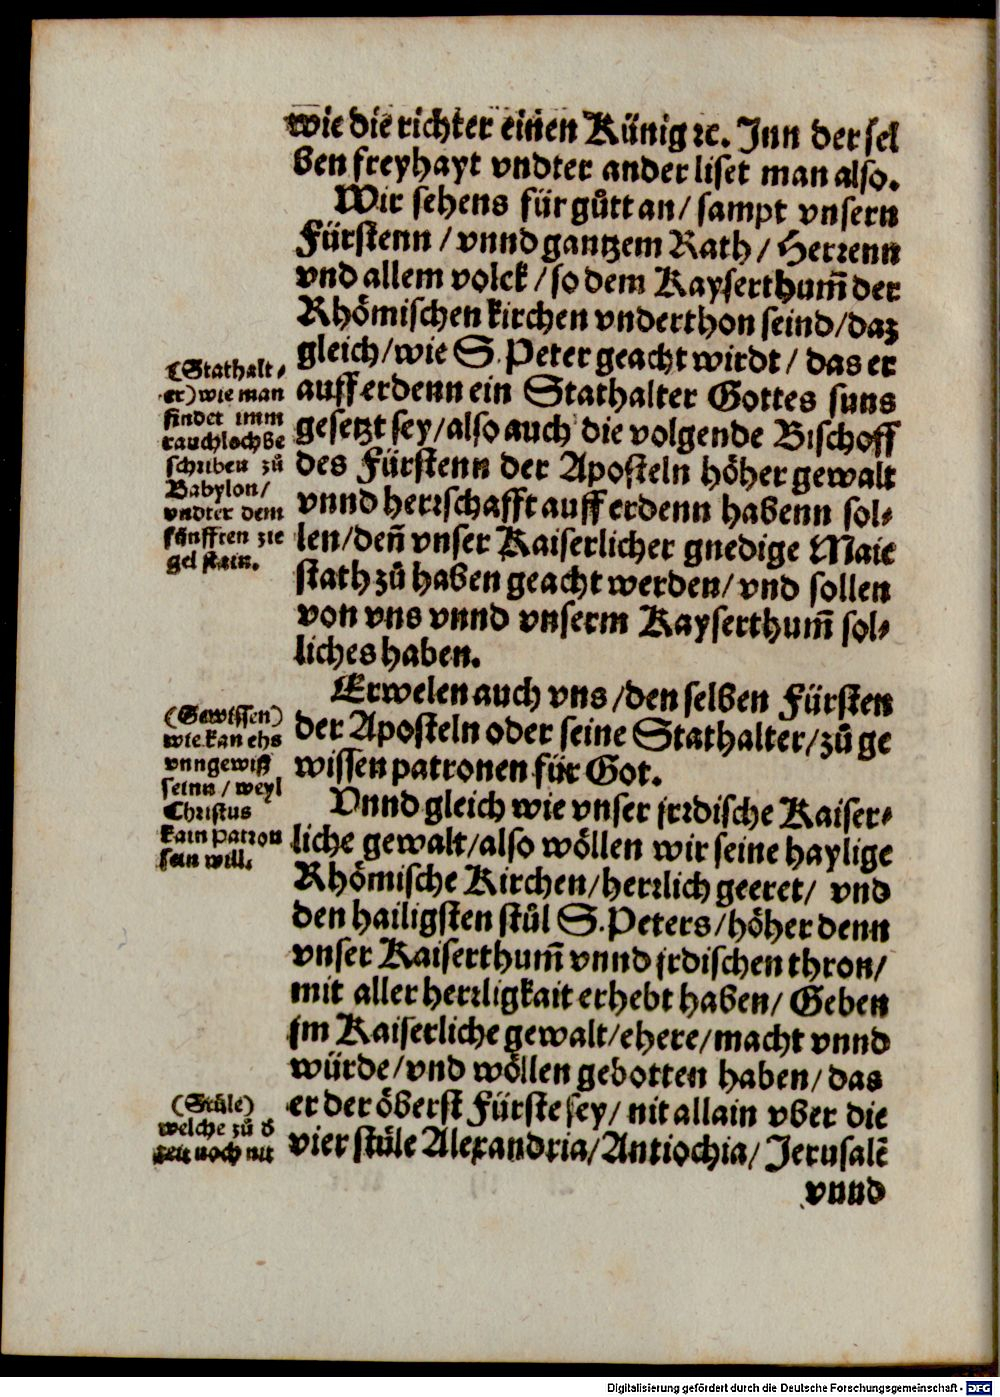 wie die richter einen Künig ꝛc. Jnn der sel
ben freyhayt vndter ander liset man also.
Wir sehens für gůtt an / sampt vnsern
Fürstenn / vnnd gantzem Rath / Herꝛenn
vnd allem volck / so dem Kayserthum̃ der
Rhömischen kirchen vnderthon seind / daz
gleich / wie S. Peter geacht wirdt / das er
auff erdenn ein Stathalter Gottes suns
gesetzt sey / also auch die volgende Bischoff
des Fürstenn der Aposteln höher gewalt
vnnd herꝛschafft auff erdenn habenn sol⸗
len / deñ vnser Kaiserlicher gnedige Maie
stath zů haben geacht werden / vnd sollen
von vns vnnd vnserm Kayserthum̃ sol⸗
liches haben.
(Stathalt⸗
er) wie man
findet imm
rauchlochbe
schriben zů
Babylon /
vndter dem
fünfften zie
gel stain.
Erwelen auch vns / den selben Fürsten
der Aposteln oder seine Stathalter / zů ge
wissen patronen für Got.
(Gewissen)
wie kan ehs
vnngewiß
seinn / weyl
Christus
kain patron
sein will.
Vnnd gleich wie vnser jrꝛdische Kaiser⸗
liche gewalt / also wöllen wir seine haylige
Rhömische Kirchen / herꝛlich geeret / vnd
den hailigsten stůl S. Peters / höher denn
vnser Kaiserthum̃ vnnd jrdischen thron /
mit aller herꝛligkait erhebt haben / Geben
jm Kaiserliche gewalt / ehere / macht vnnd
würde / vnd wöllen gebotten haben / das
er der öberst Fürste sey / nit allain vber die
vier stüle Alexandria / Antiochia / Jerusalẽ
(Stüle)
welche zů d
zeit noch nit
vnnd
Digitalisierung gefördert durch die Deutsche Forschungsgemeinschaft - DFG